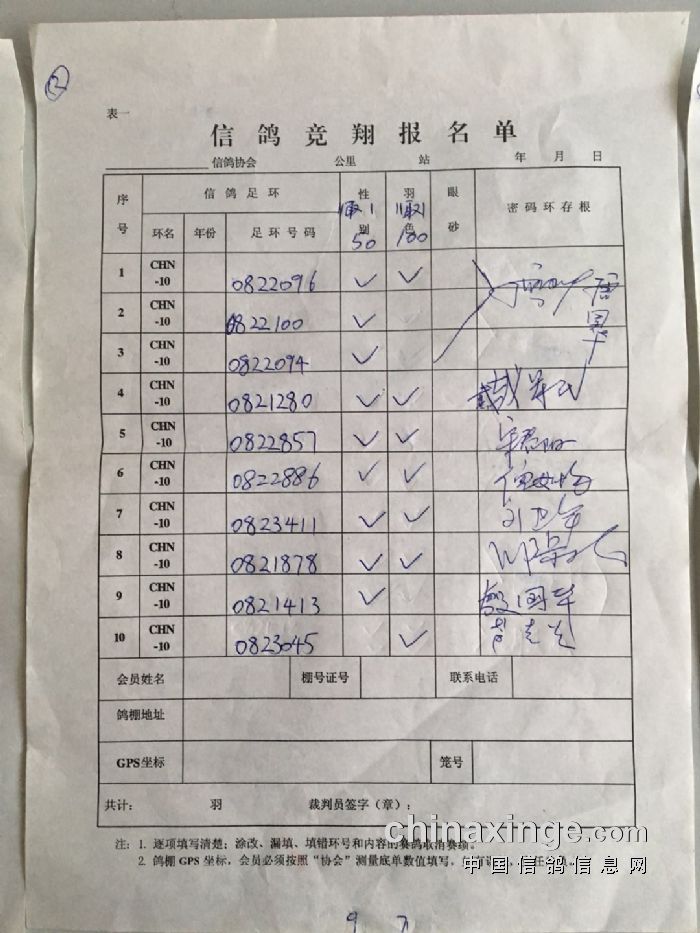 ②
表一
信鸽竞翔报名单
信鸽协会 公里 站 年 月 日
序号 信鸽足环 性别 羽色 眼砂 密码环存根
取1 取1
环名 年份 足环号码 50 100
1 CHN-10 0822096 ✓ ✓
2 CHN-10 0822100 ✓
3 CHN-10 0822094 ✓
4 CHN-10 0821280 ✓ ✓
5 CHN-10 0822857 ✓ ✓
6 CHN-10 0822886 ✓ ✓
7 CHN-10 0823411 ✓ ✓ 刘卫年
8 CHN-10 0821878 ✓ ✓
9 CHN-10 0821413 ✓ 殷国华
10 CHN-10 0823045 ✓
会员姓名 棚号证号 联系电话
鸽棚地址
GPS坐标 笼号
共计: 羽 裁判员签字(章):
注: 1. 逐项填写清楚;涂改、漏填、填错环号和内容的赛鸽取消赛绩。
2. 鸽棚GPS坐标,会员必须按照“协会”测量底单数值填写,
chinaxinge.com
中国信鸽信息网